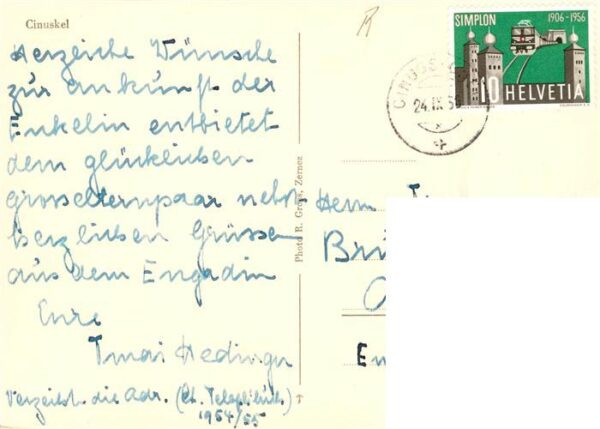 Cinuskel
Herzliche Wünsche
zur Ankunft der
Enkelin entbietet
dem glücklichen
Grosselternpaar nebst
herzlichen Grüssen
aus dem Engadin
Eure
Hedinger
Verzeiht die Adr. (lt. Telephbuch.)
1954/55
Photo R. Grass, Zernez
SIMPLON 1906-1956
10 HELVETIA
24.IX.5
Herrn